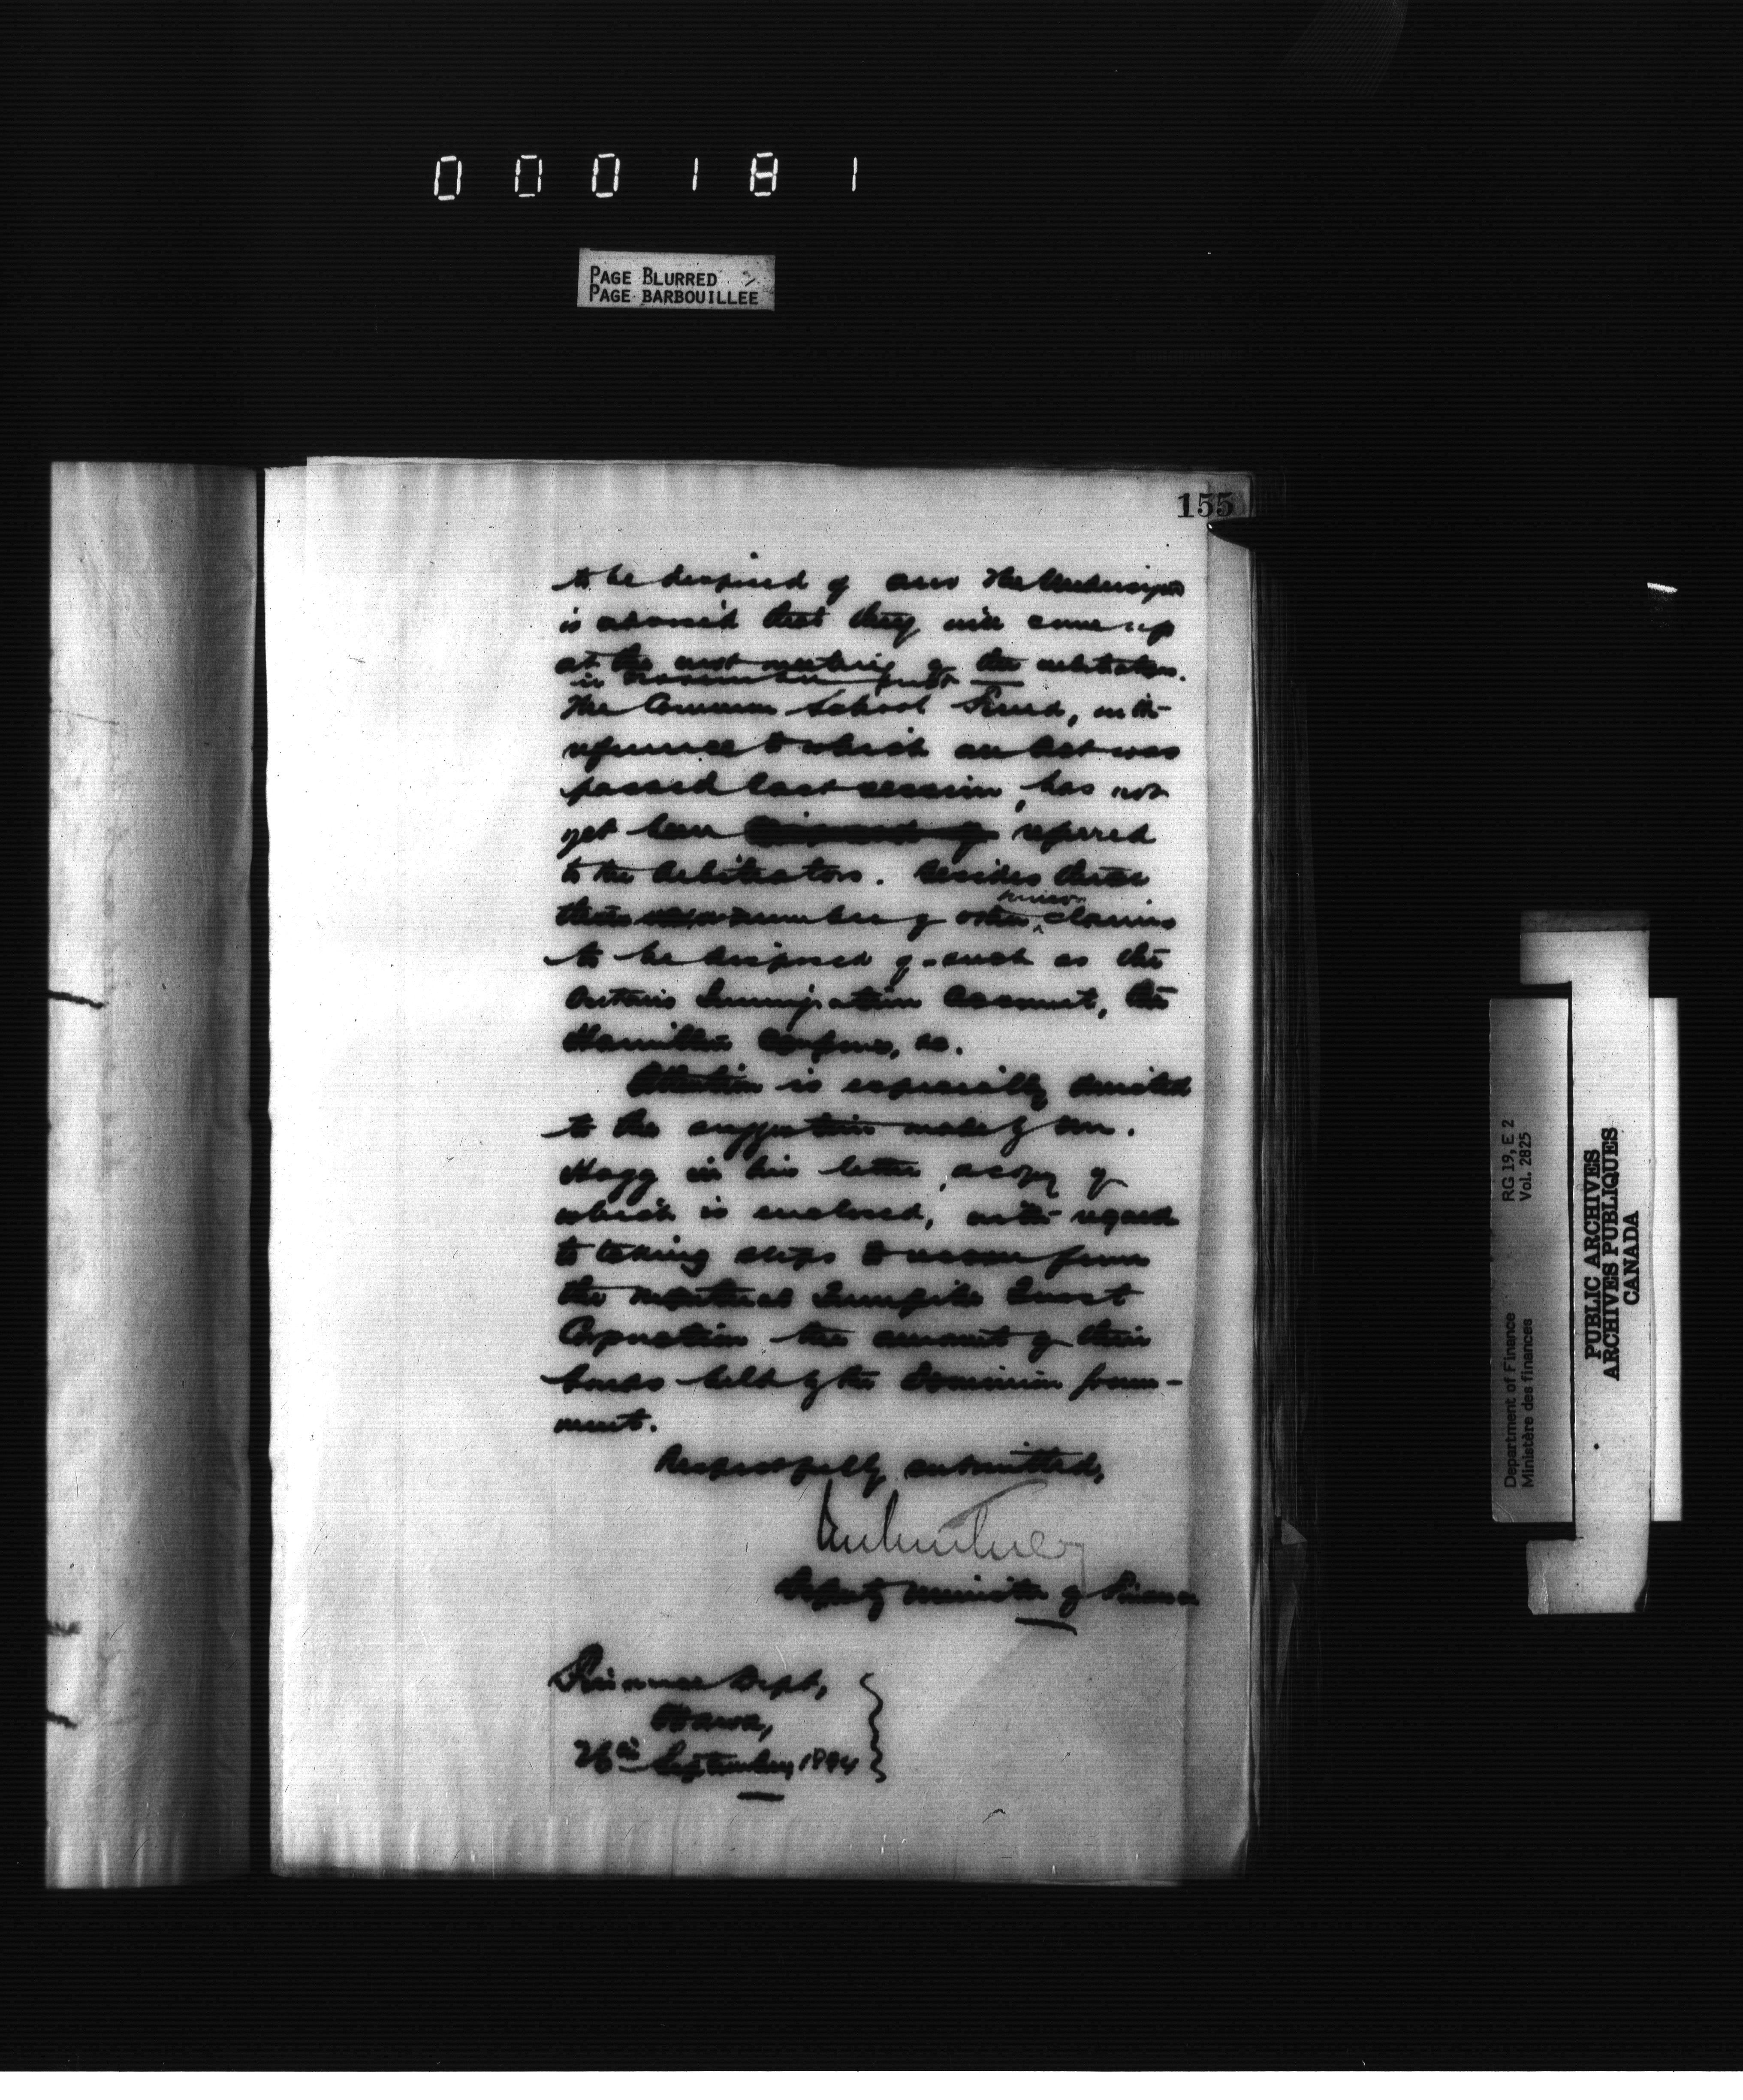 000181
PAGE BLURRED
PAGE BARBOUILLEE
155
to be disposed of and the Undersigned
is advised that they will come up
at the next meeting of the arbitrators.
in November
The Common School Fund, with
reference to which an Act was
passed last session, has not
yet been referred
to the Arbitrators. Besides these
minor
there a number of other ^ claims
to be disposed of such as the
Ontario Immigration Account, the
Hamilton, &c.
Attention is especially directed
to the suggestion made by Mr.
Hogg in his letter, a copy of
which is enclosed, with regard
to taking steps to recover from
the Montreal Turnpike Trust
Corporation the amount of their
bonds held by the Dominion Govern-
ment.
Respectfully submitted,
Deputy Minister of Finance
Finance Dept,
Ottawa,
26th September 1894
Department of Finance RG 19, E 2
Ministère des finances Vol. 2825
PUBLIC ARCHIVES
ARCHIVES PUBLIQUES
CANADA